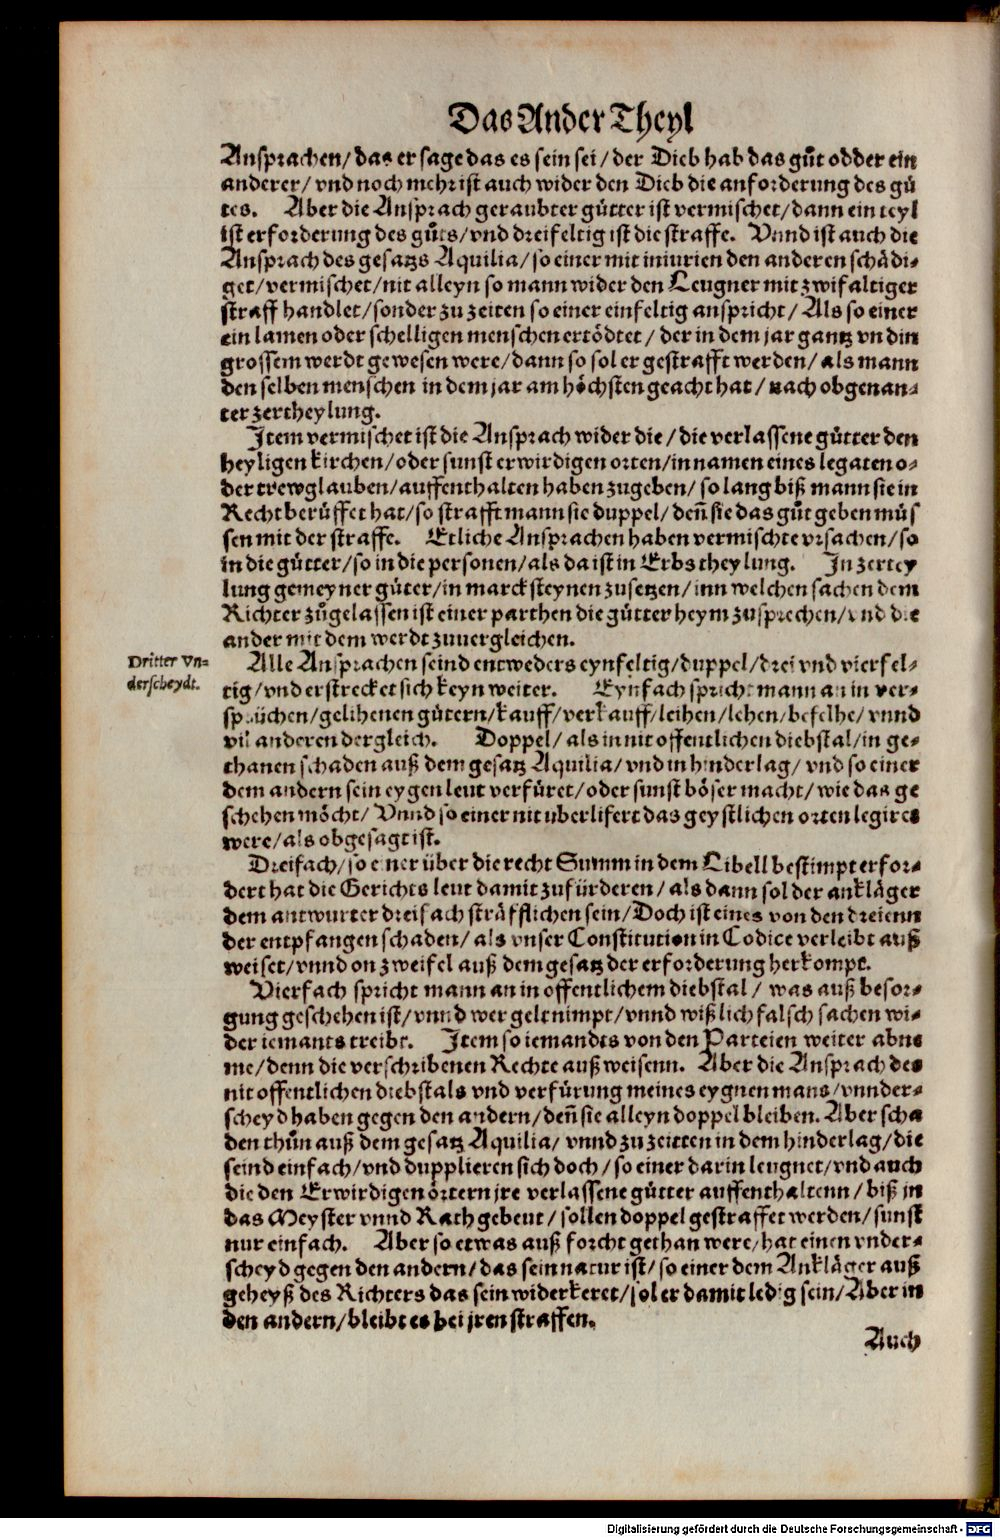 Das Ander Theyl
Ansprachen/das er sage das es sein sei/der Dieb hab das gůt odder ein
anderer/vnd noch mehr ist auch wider den Dieb die anforderung des gů
tes. Aber die Ansprach geraubter gütter ist vermischet/dann ein teyl
ist erforderung des gůts/vnd dreifeltig ist die straffe. Vnnd ist auch die
Ansprach des gesatzs Aquilia/so einer mit iniurien den anderen schädi⸗
get/vermischet/nit alleyn so mann wider den Leugner mit zwifaltiger
straff handlet/sonder zu zeiten so einer einfeltig anspricht/Als so einer
ein lamen oder schelligen menschen ertödtet/der in dem jar gantz vn din
grossem werdt gewesen were/dann so sol er gestrafft werden/als mann
den selben menschen in dem jar am höchsten geacht hat/nach obgenan⸗
ter zertheylung.
Item vermischet ist die Ansprach wider die/die verlassene gütter den
heyligen kirchen/oder sunst erwirdigen orten/in namen eines legaten o⸗
der trewglauben/auffenthalten haben zugeben/so lang biß mann sie in
Recht berüffet hat/so strafft mann sie duppel/deñ sie das gůt geben müs
sen mit der straffe. Etliche Ansprachen haben vermischte vrsachen/so
in die gütter/so in die personen/als da ist in Erbs theylung. In zertey
lung gemeyner güter/in marcksteynen zusetzen/inn welchen sachen dem
Richter zůgelassen ist einer parthen die gütter heym zusprechen/vnd die
ander mit dem werdt zuuergleichen.
Dritter Vn⸗
derscheydt.
Alle Ansprachen seind entweders eynfeltig/duppel/drei vnd vierfel⸗
tig/vnd erstrecket sich keyn weiter. Eynfach spricht mann an in ver⸗
sprüchen/gelihenen gütern/kauff/verkauff/leihen/lehen/befelhe/vnnd
vil anderen dergleich. Doppel/als in nit offentlichen diebstal/in ge⸗
thanen schaden auß dem gesatz Aquilia/vnd in hinderlag/vnd so einer
dem andern sein eygen leut verfüret/oder sunst böser macht/wie das ge
schehen möcht/Vnnd so einer nit uberlifert das geystlichen orten legires
were/als obgesagt ist.
Dreifach/so einer über die recht Summ in dem Libell bestimpt erfor⸗
dert hat die Gerichts leut damit zufürderen/als dann sol der ankläger
dem antwurter dreifach sträfflichen sein/Doch ist eines von den dreienn
der entpfangen schaden/als vnser Constitution in Codice verleibt auß
weiset/vnnd on zweifel auß dem gesatz der erforderung herkompt.
Vierfach spricht mann an in offentlichem diebstal/was auß besor⸗
gung geschehen ist/vnnd wer gelt nimpt/vnnd wißlich falsch sachen wi⸗
der iemants treibt. Item so iemandts von den Parteien weiter abne
me/denn die verschribenen Rechte auß weisenn. Aber die Ansprach des
nit offentlichen diebstals vnd verfürung meines eygnen mans/vnnder⸗
scheyd haben gegen den andern/deñ sie alleyn doppel bleiben. Aber scha
den thůn auß dem gesatz Aquilia/vnnd zu zeitten in dem hinderlag/die
seind einfach/vnd dupplieren sich doch/so einer darin leugnet/vnd auch
die den Erwirdigen örtern jre verlassene gütter auffenthaltenn/biß jn
das Meyster vnnd Rath gebeut/sollen doppel gestraffet werden/sunst
nur einfach. Aber so etwas auß forcht gethan were/hat einen vnder⸗
scheyd gegen den andern/das sein natur ist/so einer dem Ankläger auß
geheyß des Richters das sein widerkeret/sol er damit ledig sein/Aber in
den andern/bleibt es bei jren straffen.
Auch
Digitalisierung gefördert durch die Deutsche Forschungsgemeinschaft - DFG